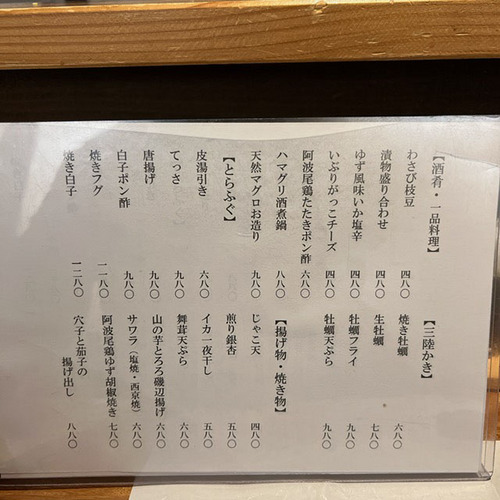 【酒肴・一品料理】
わさび枝豆 四八〇
漬物盛り合わせ 四八〇
ゆず風味いか塩辛 四八〇
いぶりがっこチーズ 四八〇
阿波尾鶏たたきポン酢 六八〇
ハマグリ酒煮鍋 八八〇
天然マグロお造り 九八〇
【とらふぐ】
皮湯引き 六八〇
てっさ 九八〇
唐揚げ 九八〇
白子ポン酢 九八〇
焼きフグ 一一八〇
焼き白子 一二八〇
【三陸かき】
焼き牡蠣 六八〇
生牡蠣 七八〇
牡蠣フライ 九八〇
牡蠣天ぷら 九八〇
【揚げ物・焼き物】
じゃこ天 四八〇
煎り銀杏 五八〇
イカ一夜干し 五八〇
舞茸天ぷら 六八〇
山の芋とろろ磯辺揚げ 六八〇
サワラ（塩焼・西京焼） 六八〇
阿波尾鶏ゆず胡椒焼き 七八〇
穴子と茄子の
揚げ出し 八八〇